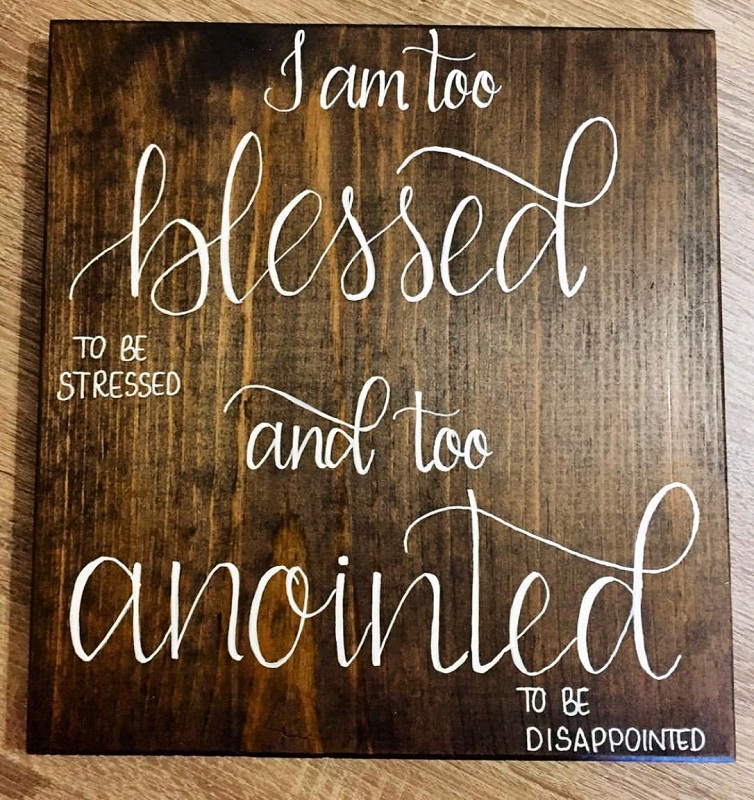 I am too
blessed
TO BE
STRESSED
and too
anointed
TO BE
DISAPPOINTED